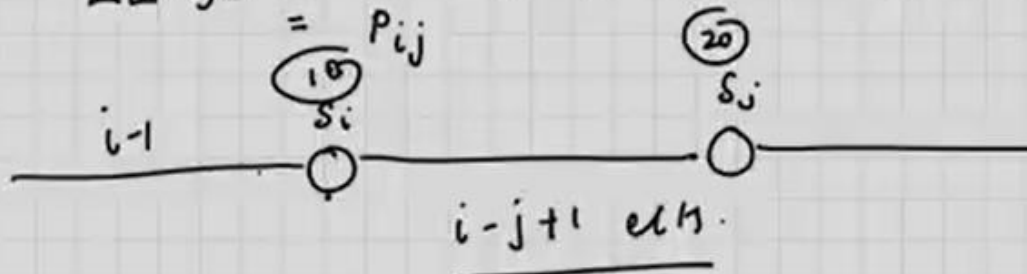 = Pij
10 20
Si Sj
i-1
i-j+1 elts.